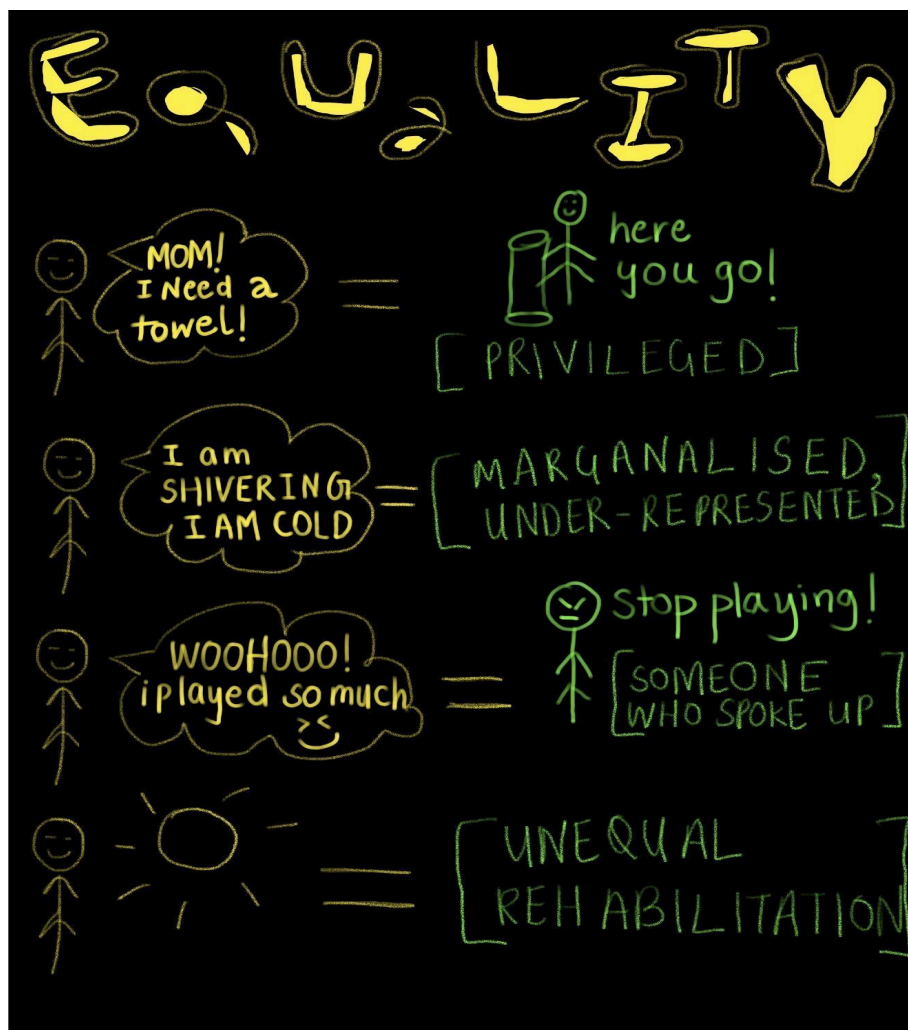 EQUaLITY
MOM!
I Need a
towel!
here
you go!
[PRIVILEGED]
I am
SHIVERING
I AM COLD
[MARGANALISED,
UNDER-REPRESENTED]
WOOHOOO!
i played so much
stop playing!
[SOMEONE
WHO SPOKE UP]
[UNEQUAL
REHABILITATION]